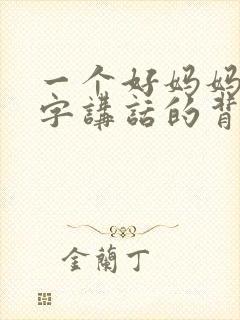 一个好妈妈
字講話的背
金蘭丁